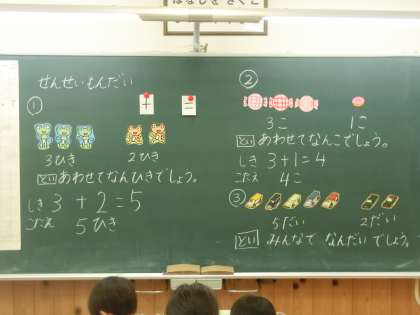 はなしをきくこ
せんせいもんだい
①
+ =
3びき 2ひき
とい あわせてなんびきでしょう。
しき 3+2=5
こたえ 5ひき
②
3こ 1こ
とい あわせてなんこでしょう。
しき 3+1=4
こたえ 4こ
③
5だい 2だい
とい みんなで なんだいでしょう。